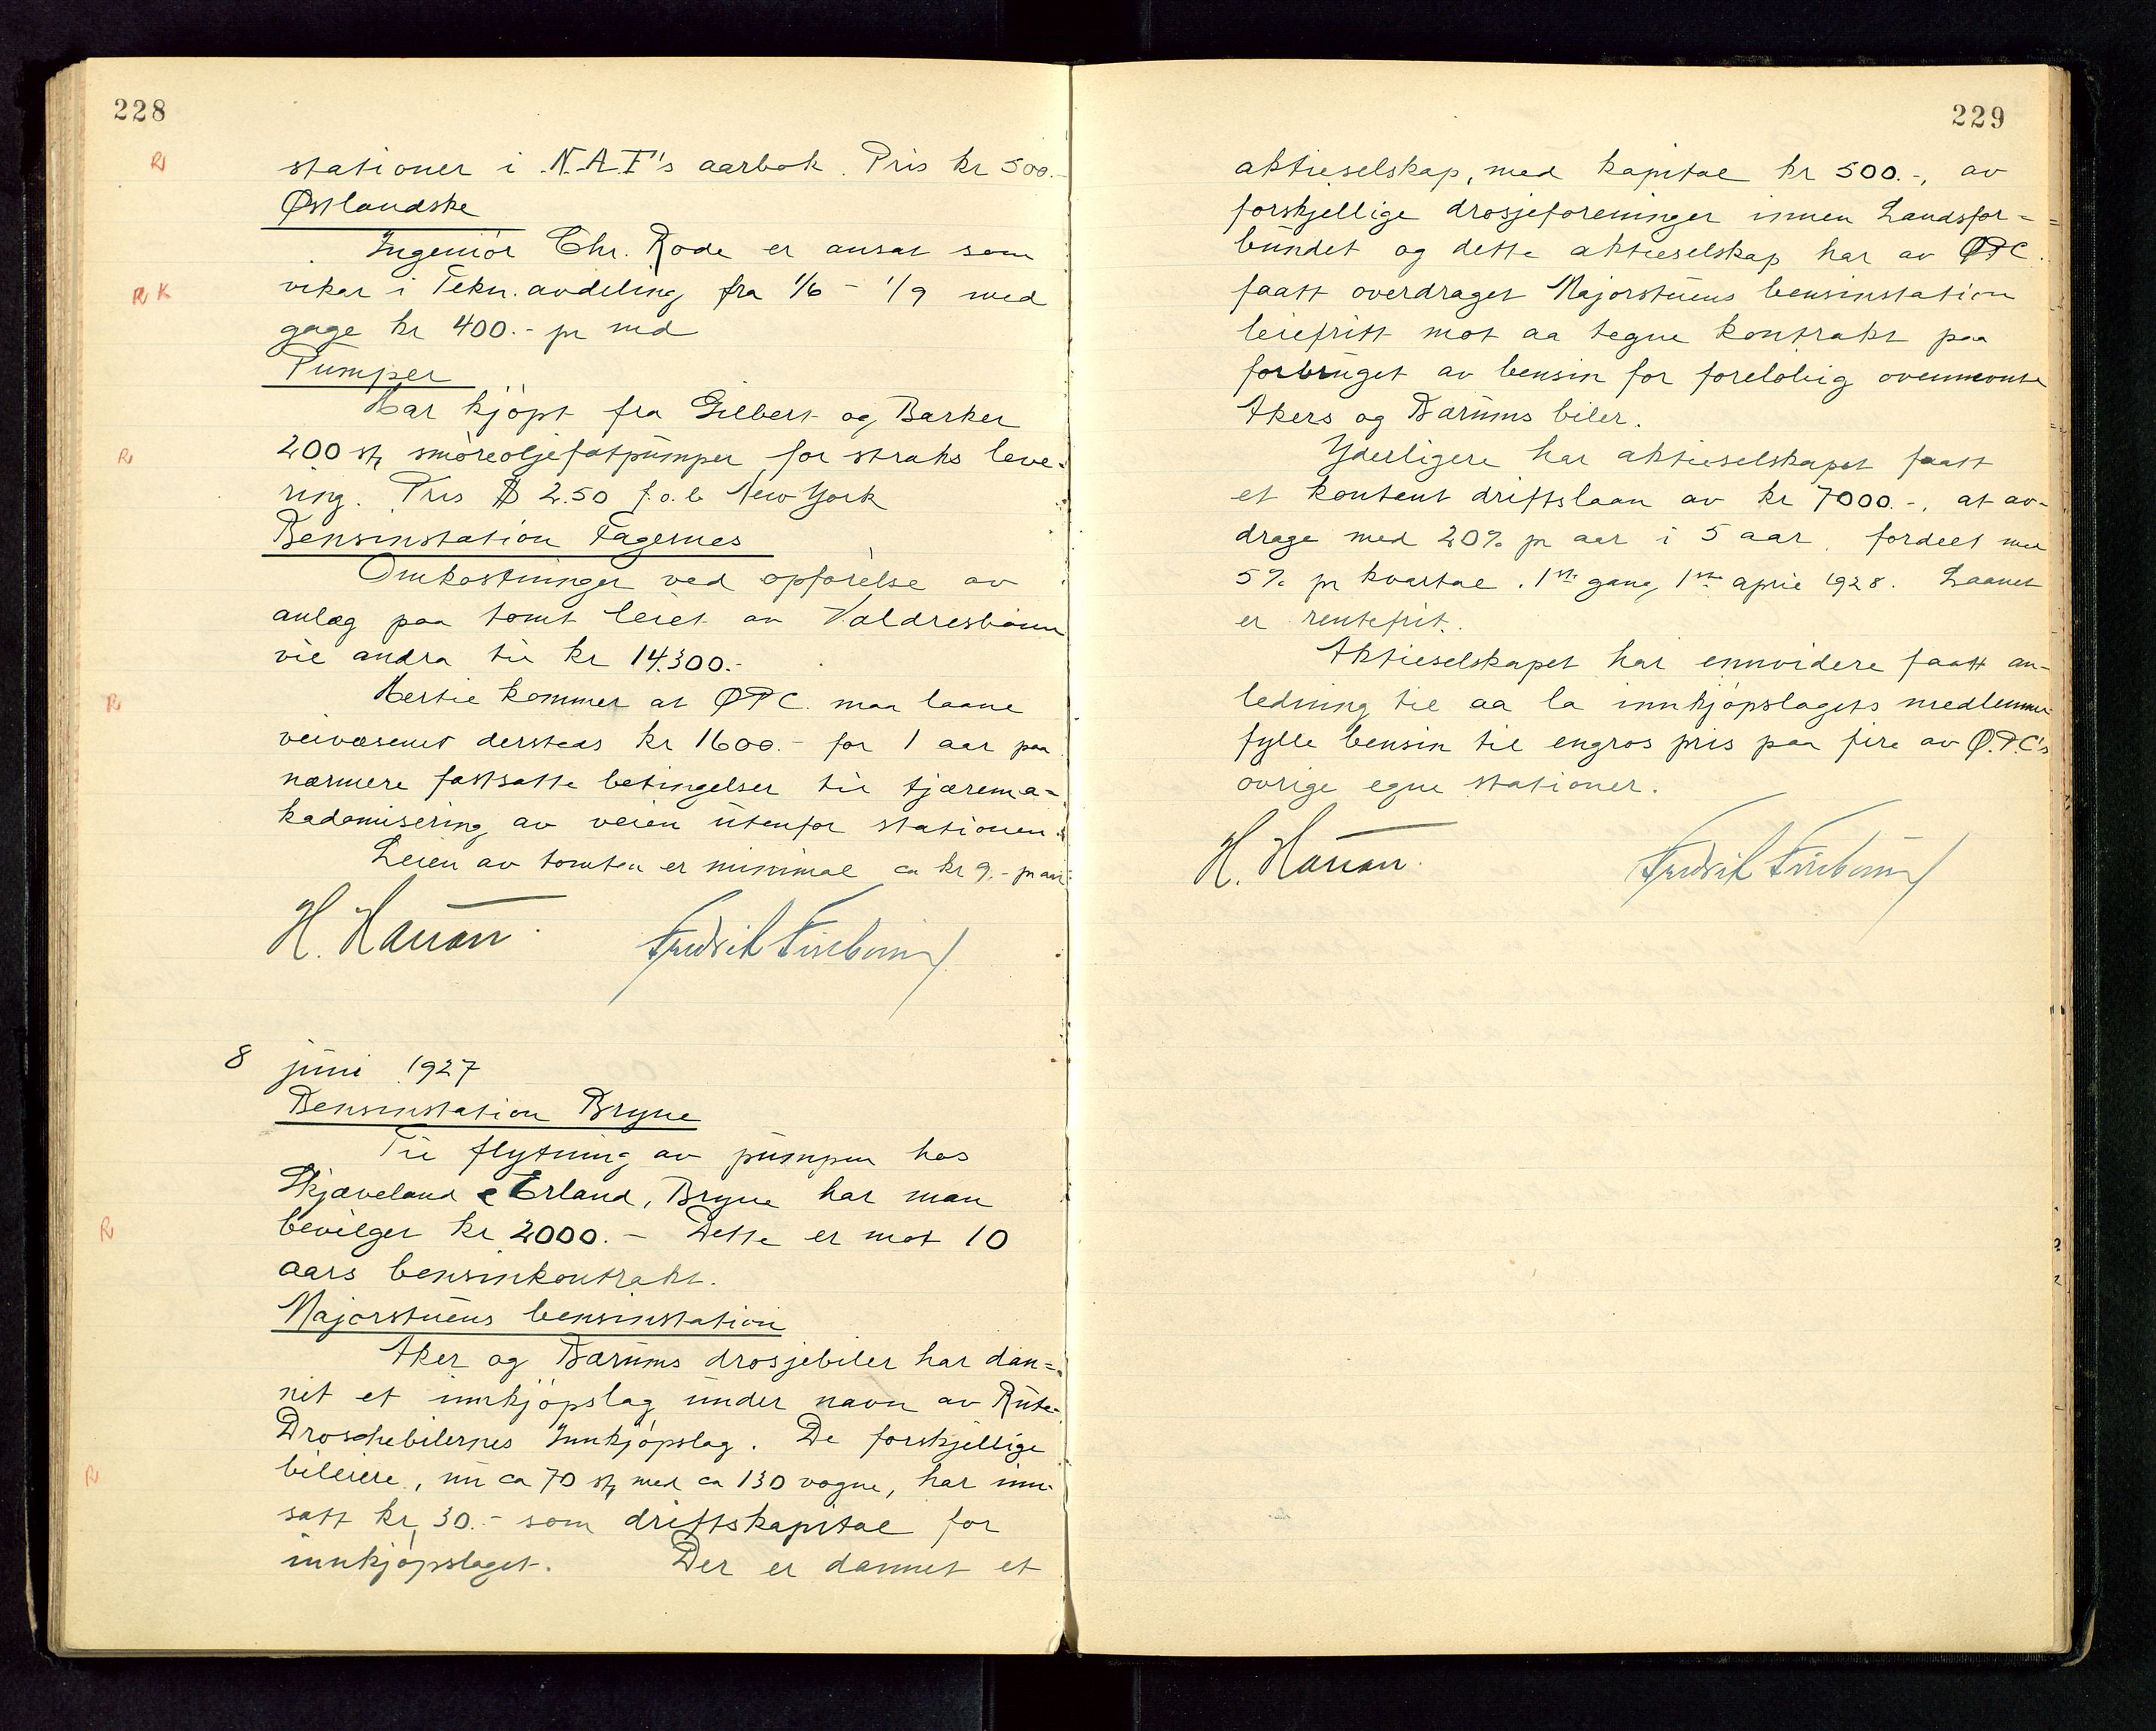 228
R
stationer i N.A.F's aarbok. Pris kr 500.-
Østlandske
Ingeniør Chr. Rode er ansat som
R K
vikar i Tekn. avdeling fra 1/6 - 1/9 med
gage kr 400.- pr md
Pumper
Har kjøpt fra Gilbert og Barker
R
200 stk smøreoljefatpumper for straks leve-
ring. Pris $ 2.50 f.o.b New York
Bensinstation Fagernes
Omkostninger ved opførelse av
anlæg paa tomt leiet av Valdresbanen
vil andra til kr 14.300.-
R
Hertil kommer at ØPC. maa laane
veivæsenet dersteds kr 1600.- for 1 aar paa
nærmere fastsatte betingelser til tjærema-
kadamisering av veien utenfor stationen.
Leien av tomten er minimal ca kr 9.- pr aar
H. Hansen. Fredrik
8 juni 1927
Bensinstation Bryne
Til flytning av pumpen hos
Skjæveland & Erland, Bryne har man
R
bevilget kr 2000.- Dette er mot 10
aars bensinkontrakt.
Majorstuens bensinstation
Aker og Bærums drosjebiler har dan-
net et innkjøpslag under navn av Rute-
Droschebilernes Innkjøpslag. De forskjellige
R
bileiere, nu ca 70 stk med ca 130 vogne, har inn-
satt kr 30.- som driftskapital for
innkjøpslaget. Der er dannet et
229
aktieselskap, med kapital kr 500.-, av
forskjellige drosjeforeninger innen Landsfor-
bundet og dette aktieselskap har av ØPC.
faatt overdraget Majorstuens bensinstation
leiefritt mot aa tegne kontrakt paa
forbruget av bensin for foreløbig ovennevnte
Akers og Bærums biler.
Yderligere har aktieselskapet faatt
et kontant driftslaan av kr 7000.-, at av-
drage med 20% pr aar i 5 aar, fordelt med
5% pr kvartal. 1ste gang 1ste april 1928. Laanet
er rentefrit.
Aktieselskapet har ennvidere faatt an-
ledning til aa la innkjøpslagets medlemmer
fylle bensin til engros pris paa fire av Ø.P.C's
øvrige egne stationer.
H. Hansen. Fredrik